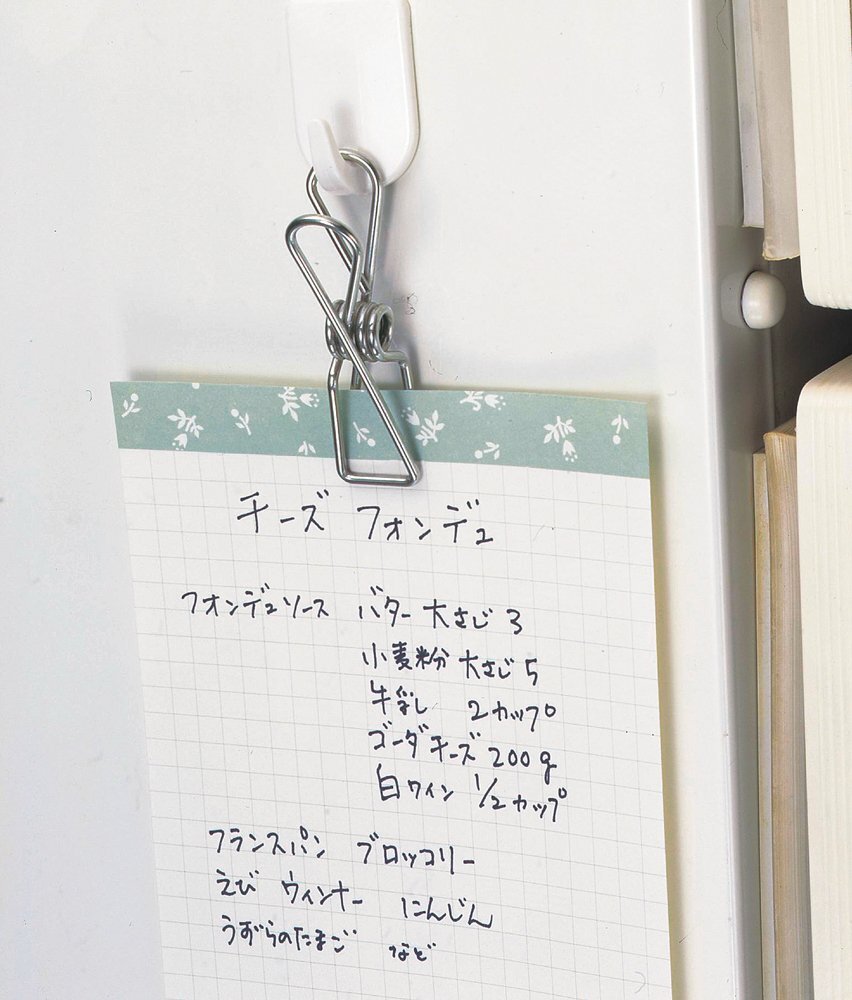 チーズ フォンデュ
フォンデュソース バター 大さじ 3
小麦粉 大さじ 5
牛乳 2カップ
ゴーダチーズ 200g
白ワイン 1/2カップ
フランスパン ブロッコリー
えび ウィンナー にんじん
うずらのたまご など